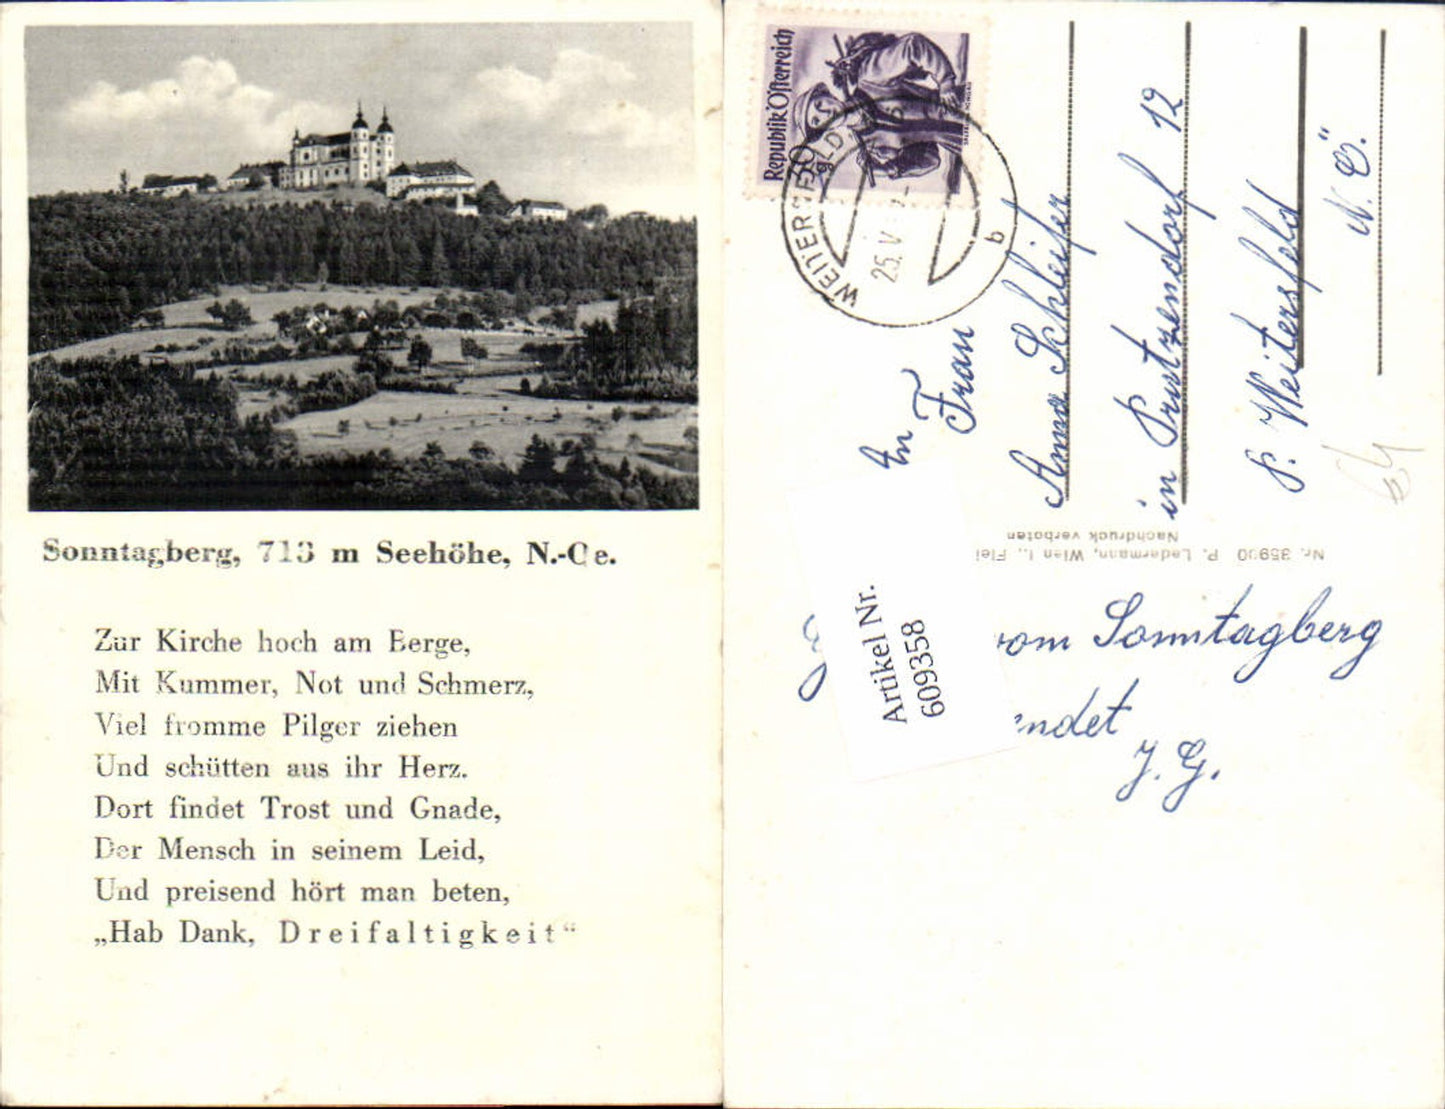 Sonntagberg, 713 m Seehöhe, N.-Oe.
Zur Kirche hoch am Berge,
Mit Kummer, Not und Schmerz,
Viel fromme Pilger ziehen
Und schütten aus ihr Herz.
Dort findet Trost und Gnade,
Der Mensch in seinem Leid,
Und preisend hört man beten,
„Hab Dank, Dreifaltigkeit“
Republik Österreich
25. V
b
An
Frau
Anna Schleifer
in Prutzendorf 12
P. Weitersfeld
N. Ö.
Nr. 359 P. Ledermann, Wien I., Flei
Nachdruck verboten
Artikel Nr.
609358
vom Sonntagberg
endet
J. G.